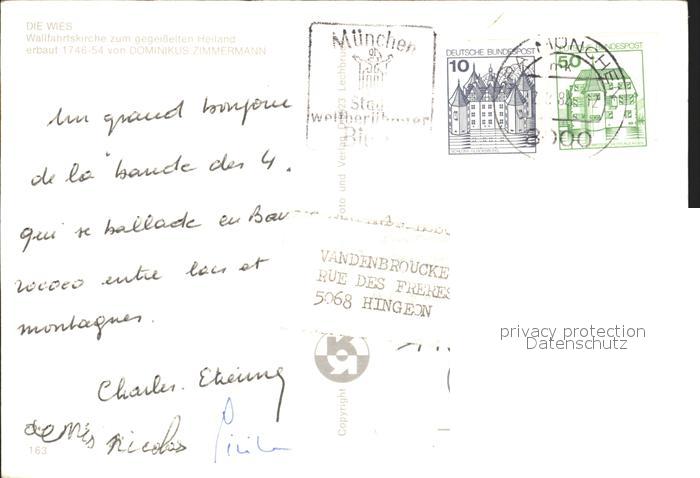 DIE WIES
Wallfahrtskirche zum gegeißelten Heiland
erbaut 1746-54 von DOMINIKUS ZIMMERMANN
Un grand bonjour
de la "bande des 4.
qui se ballade en Bav
rococo entre lacs et
montagnes.
Charles. Etienne
Nicolas
163
München
Stadt
weltberühmter
DEUTSCHE BUNDESPOST
10
50
MÜNCHEN
8000
VANDENBROUCKE
RUE DES FRERES
5068 HINGEON
Foto und Verlag
Lechbruck
Copyright
privacy protection
Datenschutz